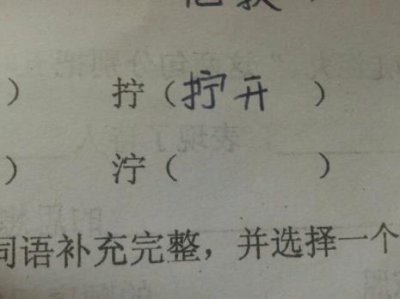 ） 拧（拧开 ）
） 泞（ ）
词语补充完整，并选择一个